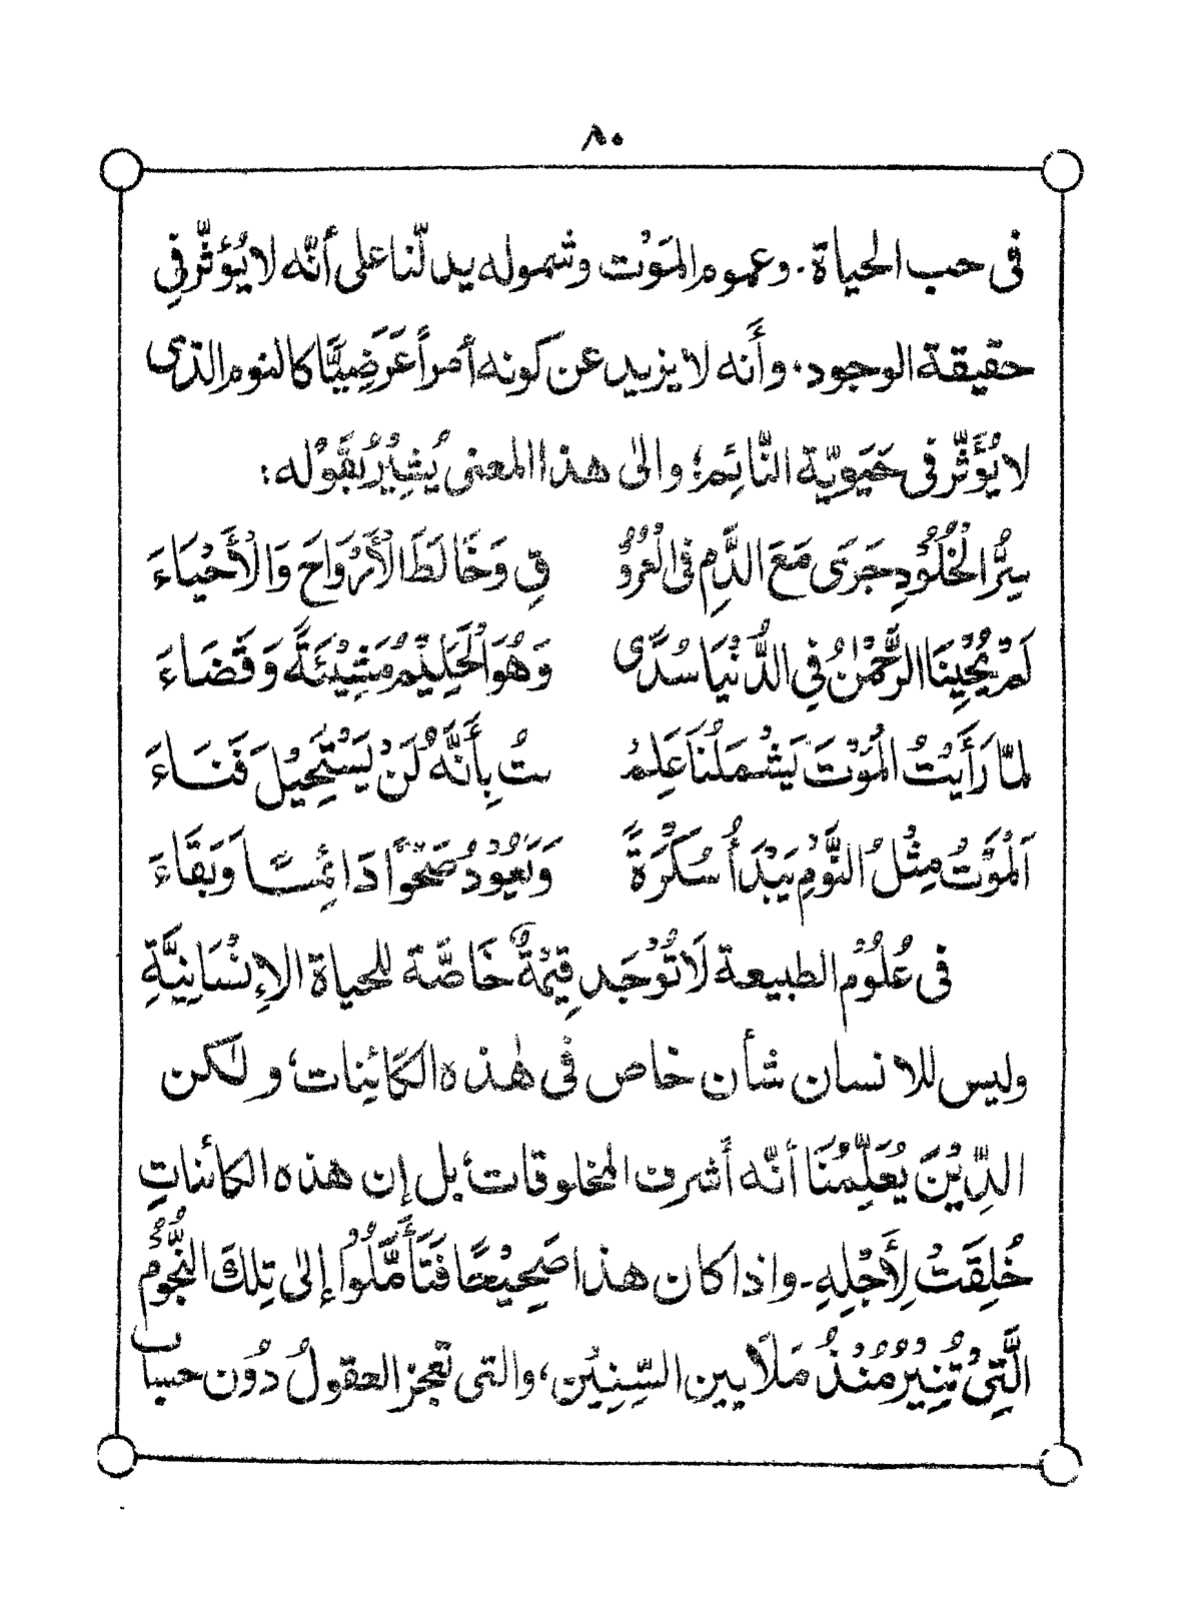 ٨٠
فى حب الحياة. وعموم المَوْت وشموله يدلّنا على أنّه لا يُؤثّر فِي
حقيقة الوجود. وأَنه لا يزيد عن كونه أمراً عَرَضِيًّا كالنوم الذى
لا يُؤَثّر فى حَيَويّة النَّائِم؛ والىٰ هذا المعنى يُشِيْرُ بقَوْله:
سِرُّ الْخُلُوْدِ جَرَى مَعَ الدَّمِ فى الْعُرُوْ قِ وَخَالَطَ الْأَرْوَاحَ وَالْأَحْيَاءَ
لَمْ يُحْيِنَا الرَّحْمٰنُ فِي الدُّنْيَا سُدًى وَهُوَ الْحَلِيْمُ مَشِيْئَةً وَقَضَاءَ
لمّا رَأَيْتُ الْمَوْتَ يَشْمَلُنَا عَلِمْ تُ بِأَنَّهُ لَنْ يَسْتَحِيْلَ فَنَاءَ
اَلْمَوْتُ مِثْلُ النَّوْمِ يَبْدَأُ سُكْرَةً وَيَعُوْدُ صَحْوًا دَائِمًا وَبَقَاءَ
فى عُلُوْمِ الطبيعة لَا تُوْجَد قِيْمَةٌ خَاصَّة للحياة الإِنْسَانِيَّةِ
وليس للانسان شأن خاص فى هٰذه الكَائِنات؛ ولٰكن
الدِّيْنَ يُعَلِّمُنَا أنّه أَشرف المخلوقات؛ بل إن هذه الكائناتِ
خُلِقَتْ لِأَجْلِهِ. واذا كان هذا صَحِيْحًا فَتَأَمَّلُوْا إلىٰ تِلكَ النُّجُوْمِ
الَّتِىْ تُنِيْرُ مُنْذُ مَلَايين السِّنِيْن، والتى تعجز العقولُ دُوْن حساب